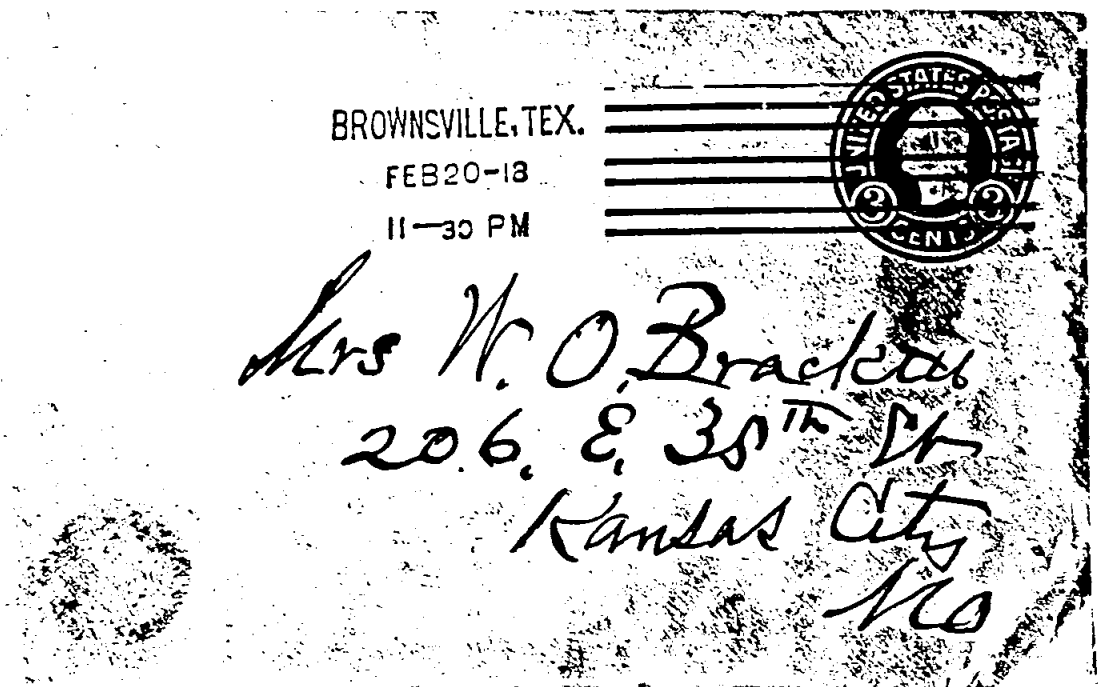 BROWNSVILLE, TEX.
FEB 20-18
11-30 PM
UNITED STATES POSTAGE
3 CENTS 3
Mrs W. O. Bracken
206. E. 35TH St
Kansas City
Mo